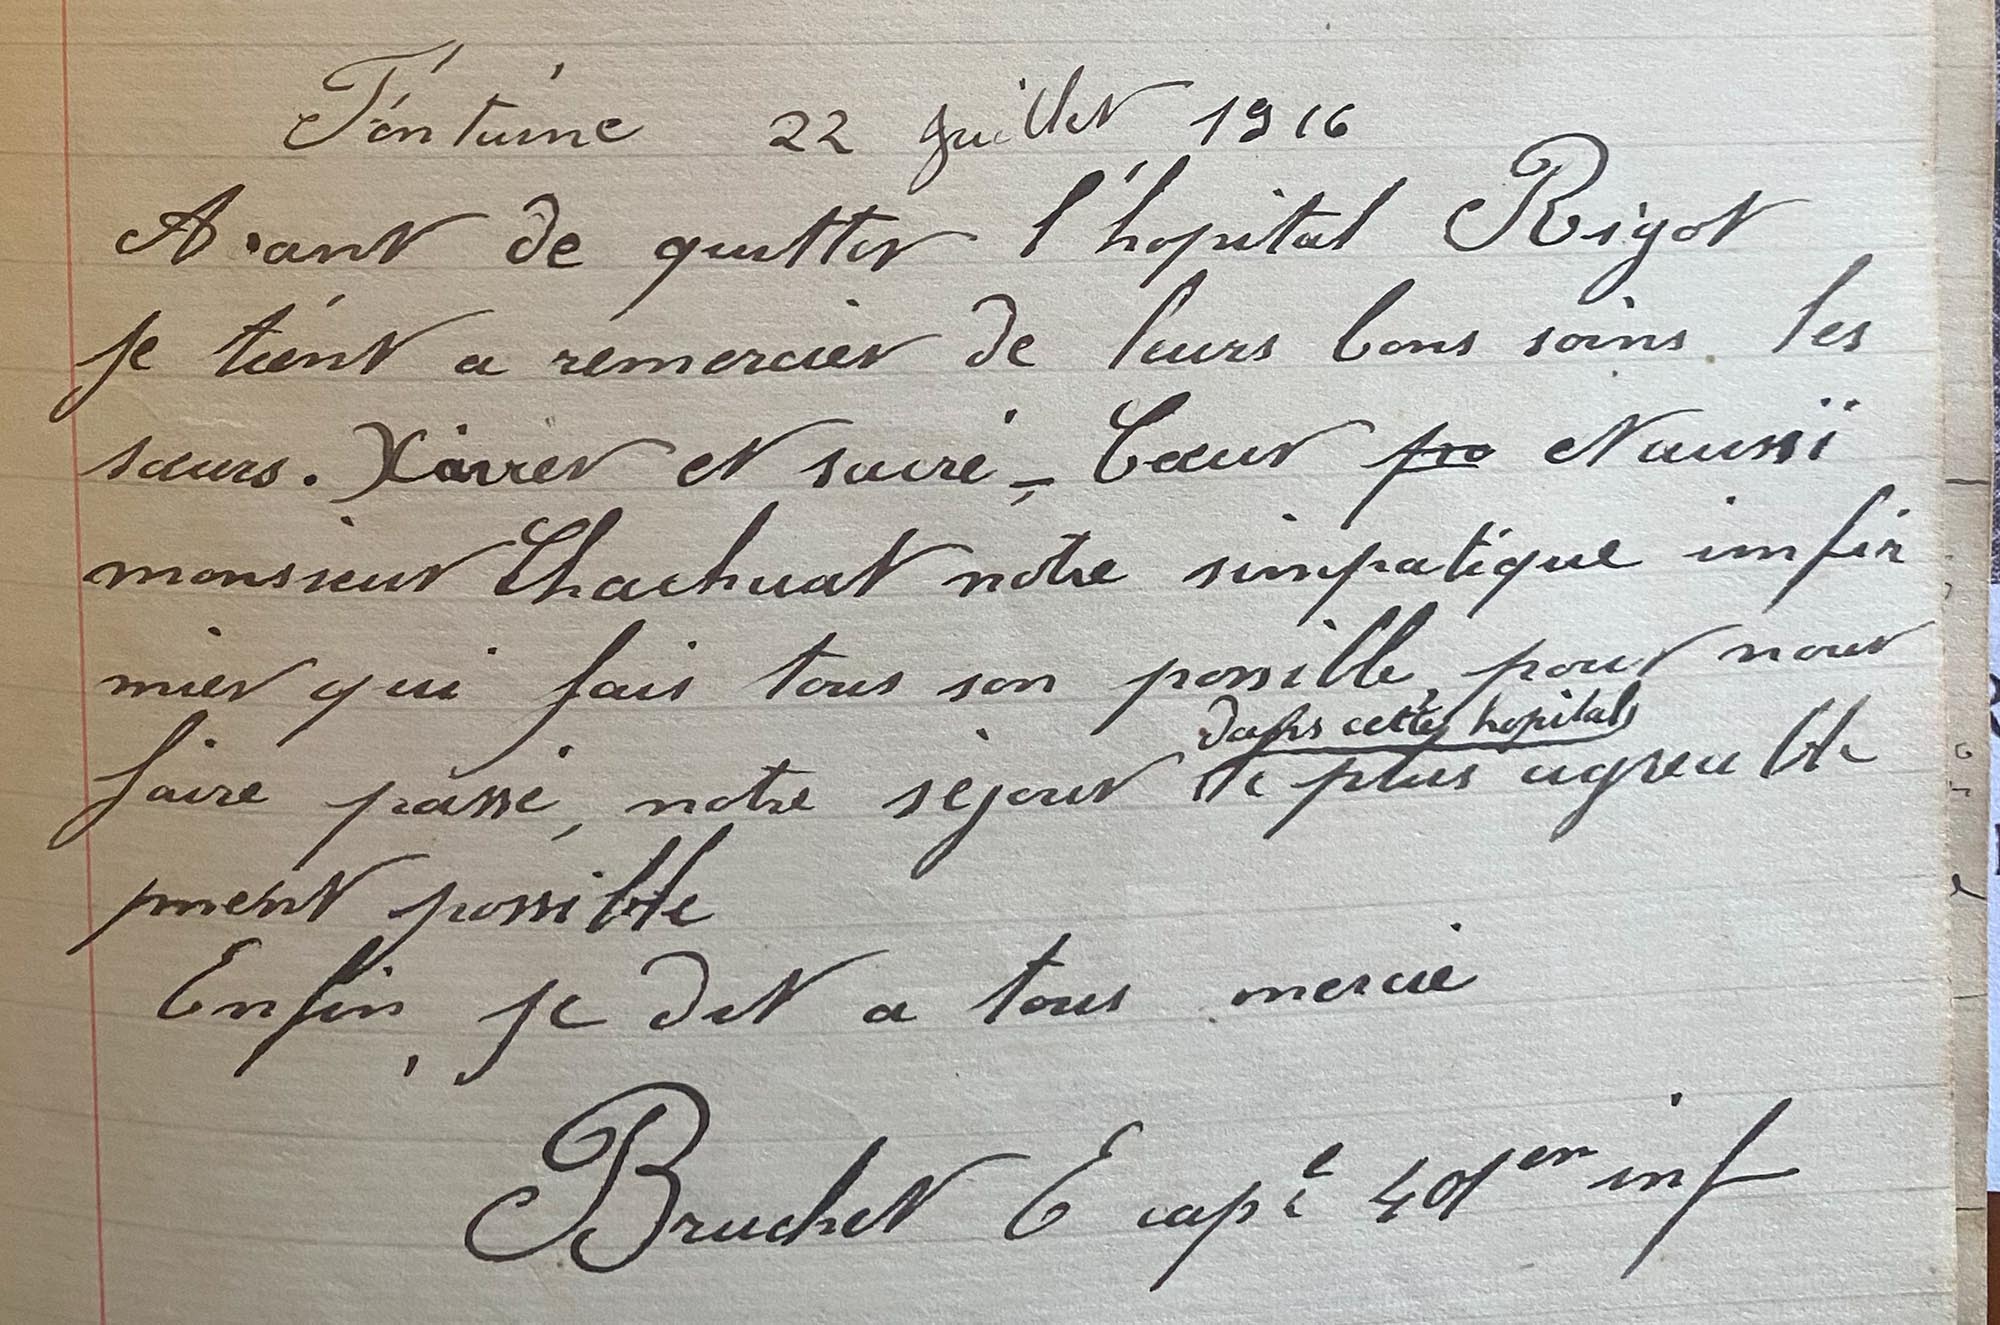 Fontaine 22 juillet 1916
Avant de quitter l'hopital Rigot
je tient a remercier de leurs bons soins les
sœurs. Xavier et sacré-Cœur et aussi
monsieur Chachuat notre simpatique imfir
mier qui fais tous son possible, pour nour
dans cette hopital
faire passé, notre séjour le plus agreable
ment possible
Enfin, je dit a tous mercie
Bruchet E cap¹ 401em inf